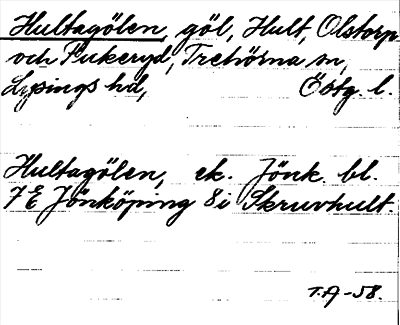 Hultagölen, göl, Hult, Olstorp
och Fukeryd, Trehörna sn,
Lysings hd, Östg. l.
Hultagölen, ek. Jönk. bl.
7 E Jönköping 8 i Skruvhult
T.A-58.